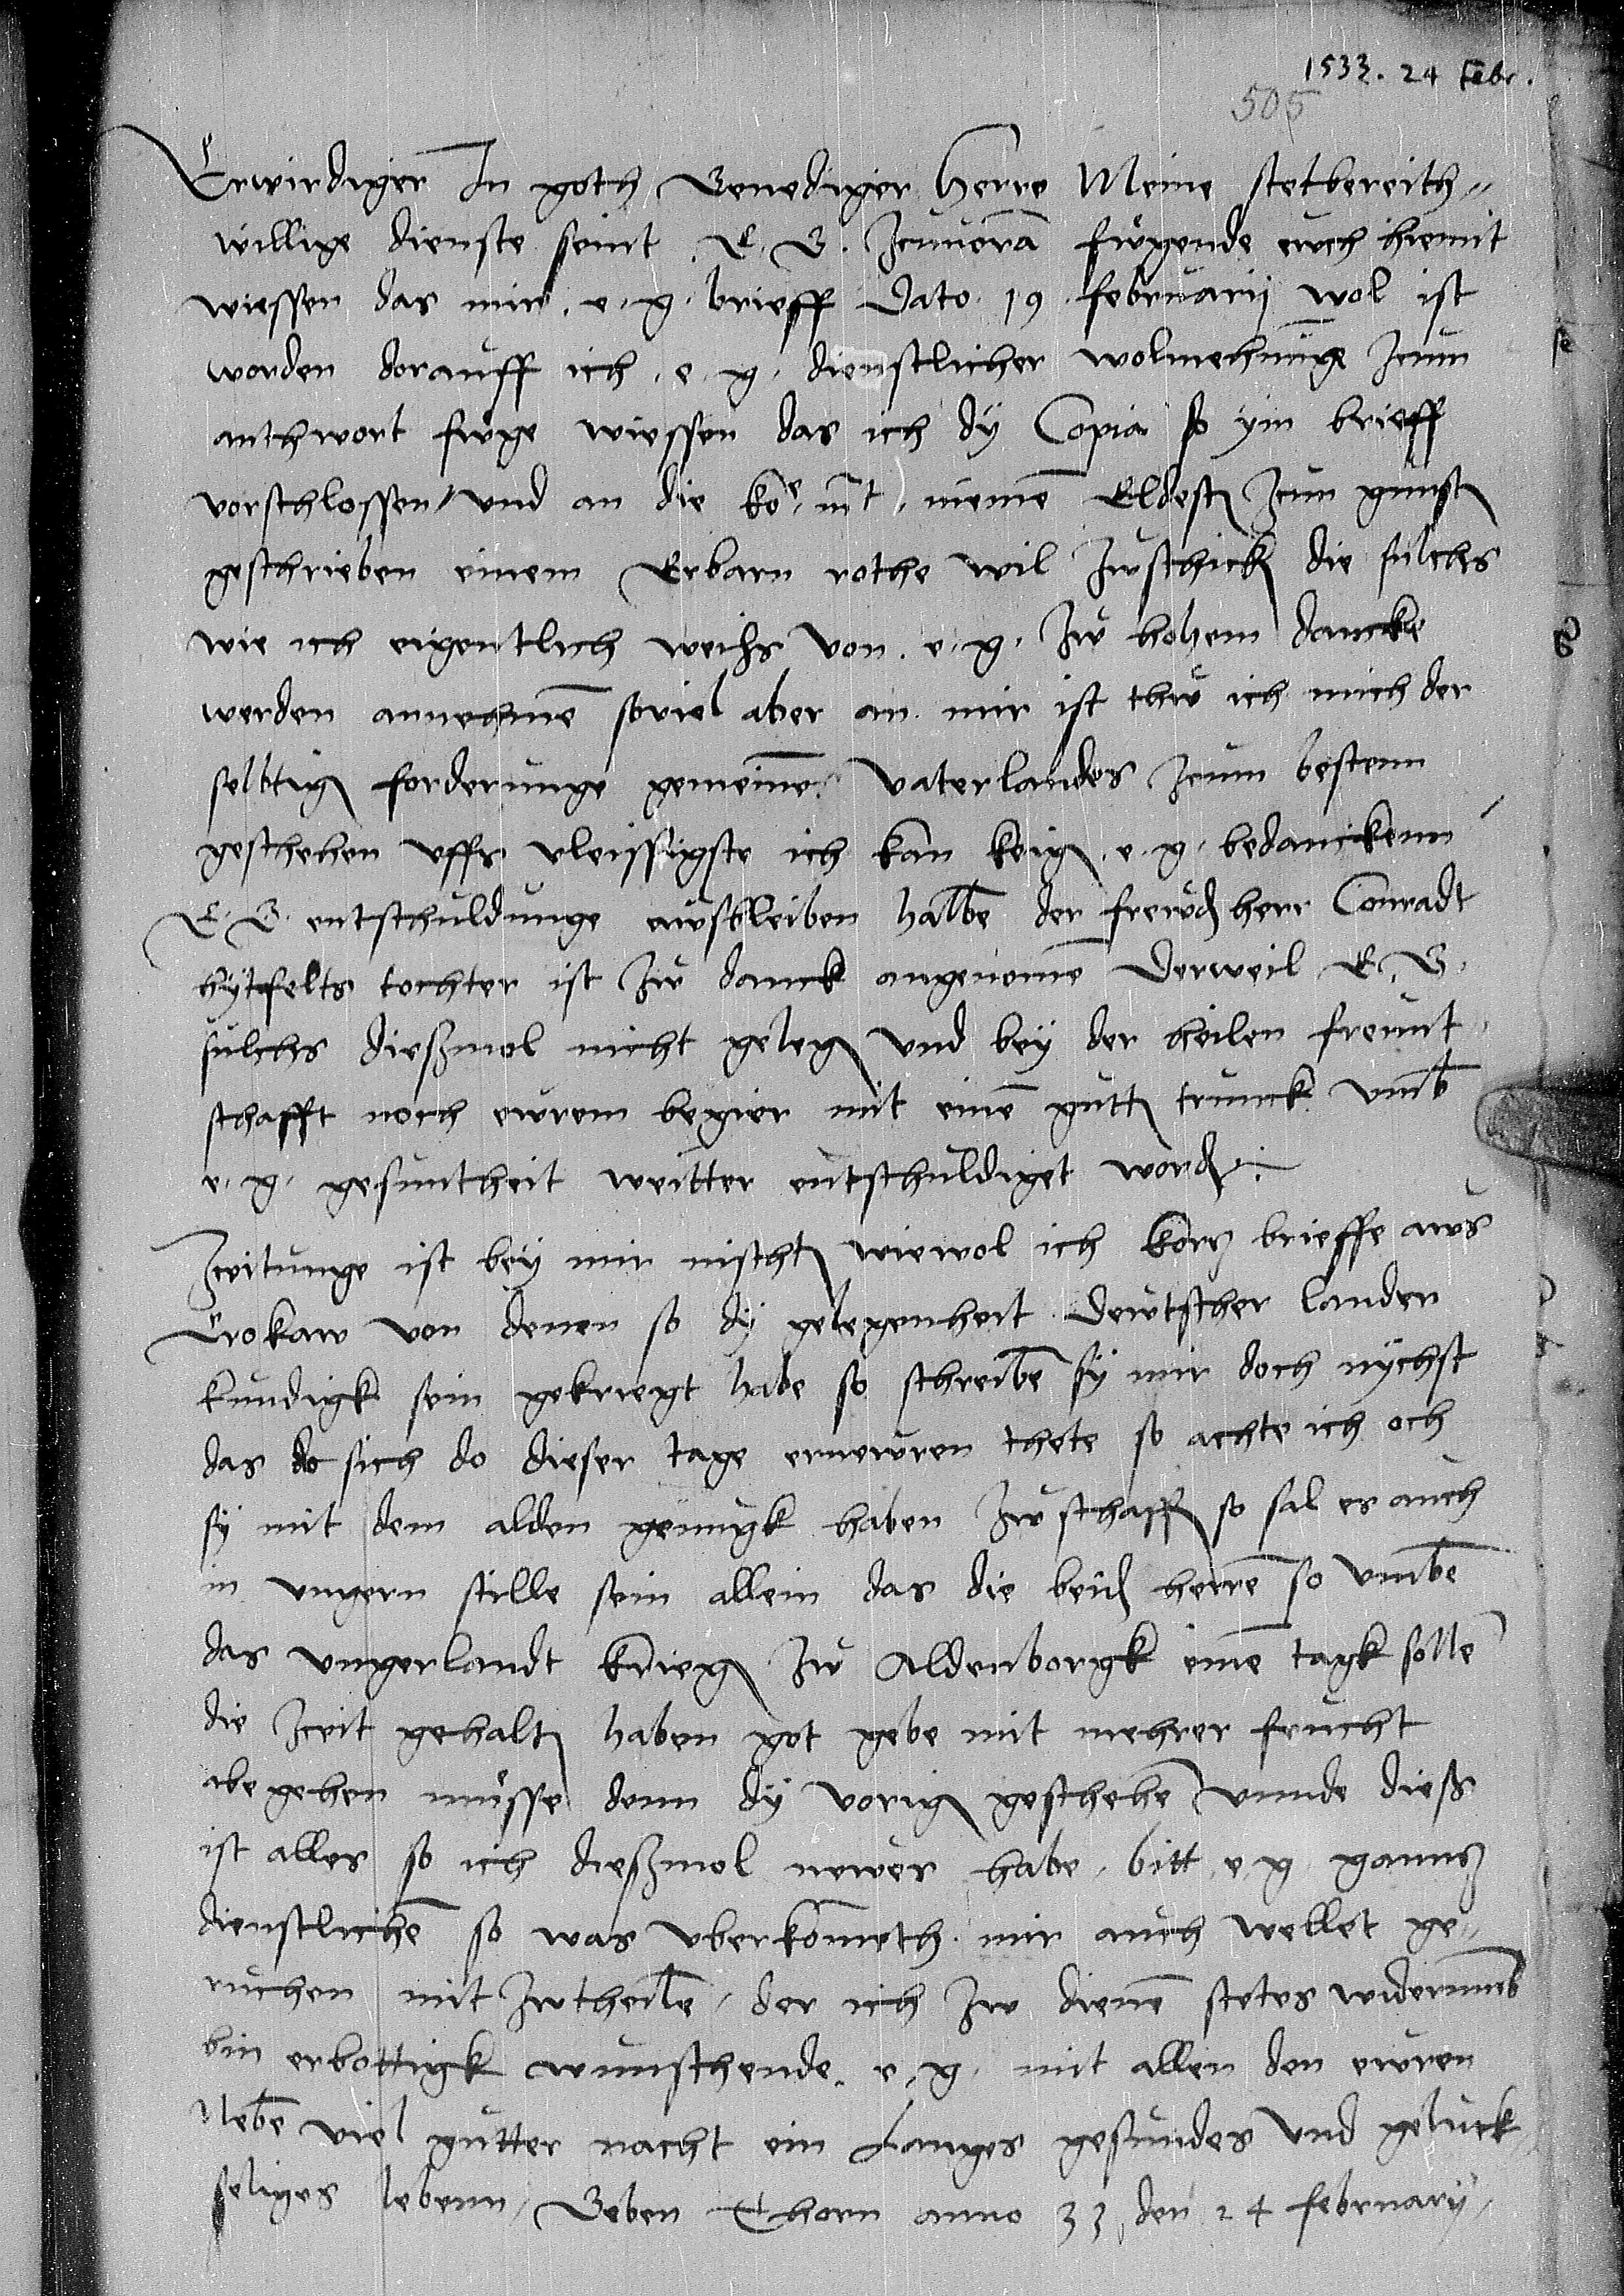 1533. 24 Febr.
505
Erwirdiger In goth Genediger Herre Meine stetbereith„
willige dienste seint E. G. Zcuuora fugende euch hiemit
wiessen das mir e. g. brieff Dato 19 februarij wol ist
worden dorauff ich e. g. dienstlicher wolmehnunge zcum
anthwort fuge wiessen das ich dy Copia so ym brieff
vorschlossen und an die koe mt meine Eldest zcum gunst
geschrieben einem Erbarn rothe wil zwschick die sulchs
wie ich eigentlich weihs von e. g. zw hohem dancke
werden annehme souiel aber an mir ist thw ich mich der
selbtig forderunge gemeine vaterlandes zcum bestenn
geschehen uffs vleissigste ich kan keig e. g. bedanckenn
E. G. entschuldunge aussbleiben halbe der freud herr Conradt
hytfelts tochter ist zw danck angenome Derweil E. G.
sulchs dieszmol nicht geleg und bey der heilen freunt
schafft noch ewrem begier mit eine gutt trunck vmb
e. g. gesuntheit weitter entschuldiget word
Zeitunge ist bey mir nischt wiewol ich korz brieffe aws
Crokaw von denen so dy gelegenheit dewtscher lander
kundigk sein gekriegt habe so schreibe sy mir doch nychst
das do sich do dieser tage ernewren thete so achte ich och
sy mit dem alden genugk haben zw schaff so sal es auch
in ungern stille sein allein das die beid herre so vmbe
das ungerlandt krieg zw Aldenborgk eine tagk solle
die zceit gehalt haben got gebe mit mehrer frucht
abegehen musse denn dy vorig geschehe vnnde diesz
ist alles so ich dieszmol newes habe bitt e. g. gannz
dienstliche so was vberkometh mir auch wellet ge„
ruchen mit zwtheile der ich zw diene stetes widerumb
bin erbottigk wunschende e. g. mit allen den ewren
Nebe viel gutter nacht ein Langes gesundes vnd geluck
seliges lebenn Geben Thorn anno 33 den 24 february